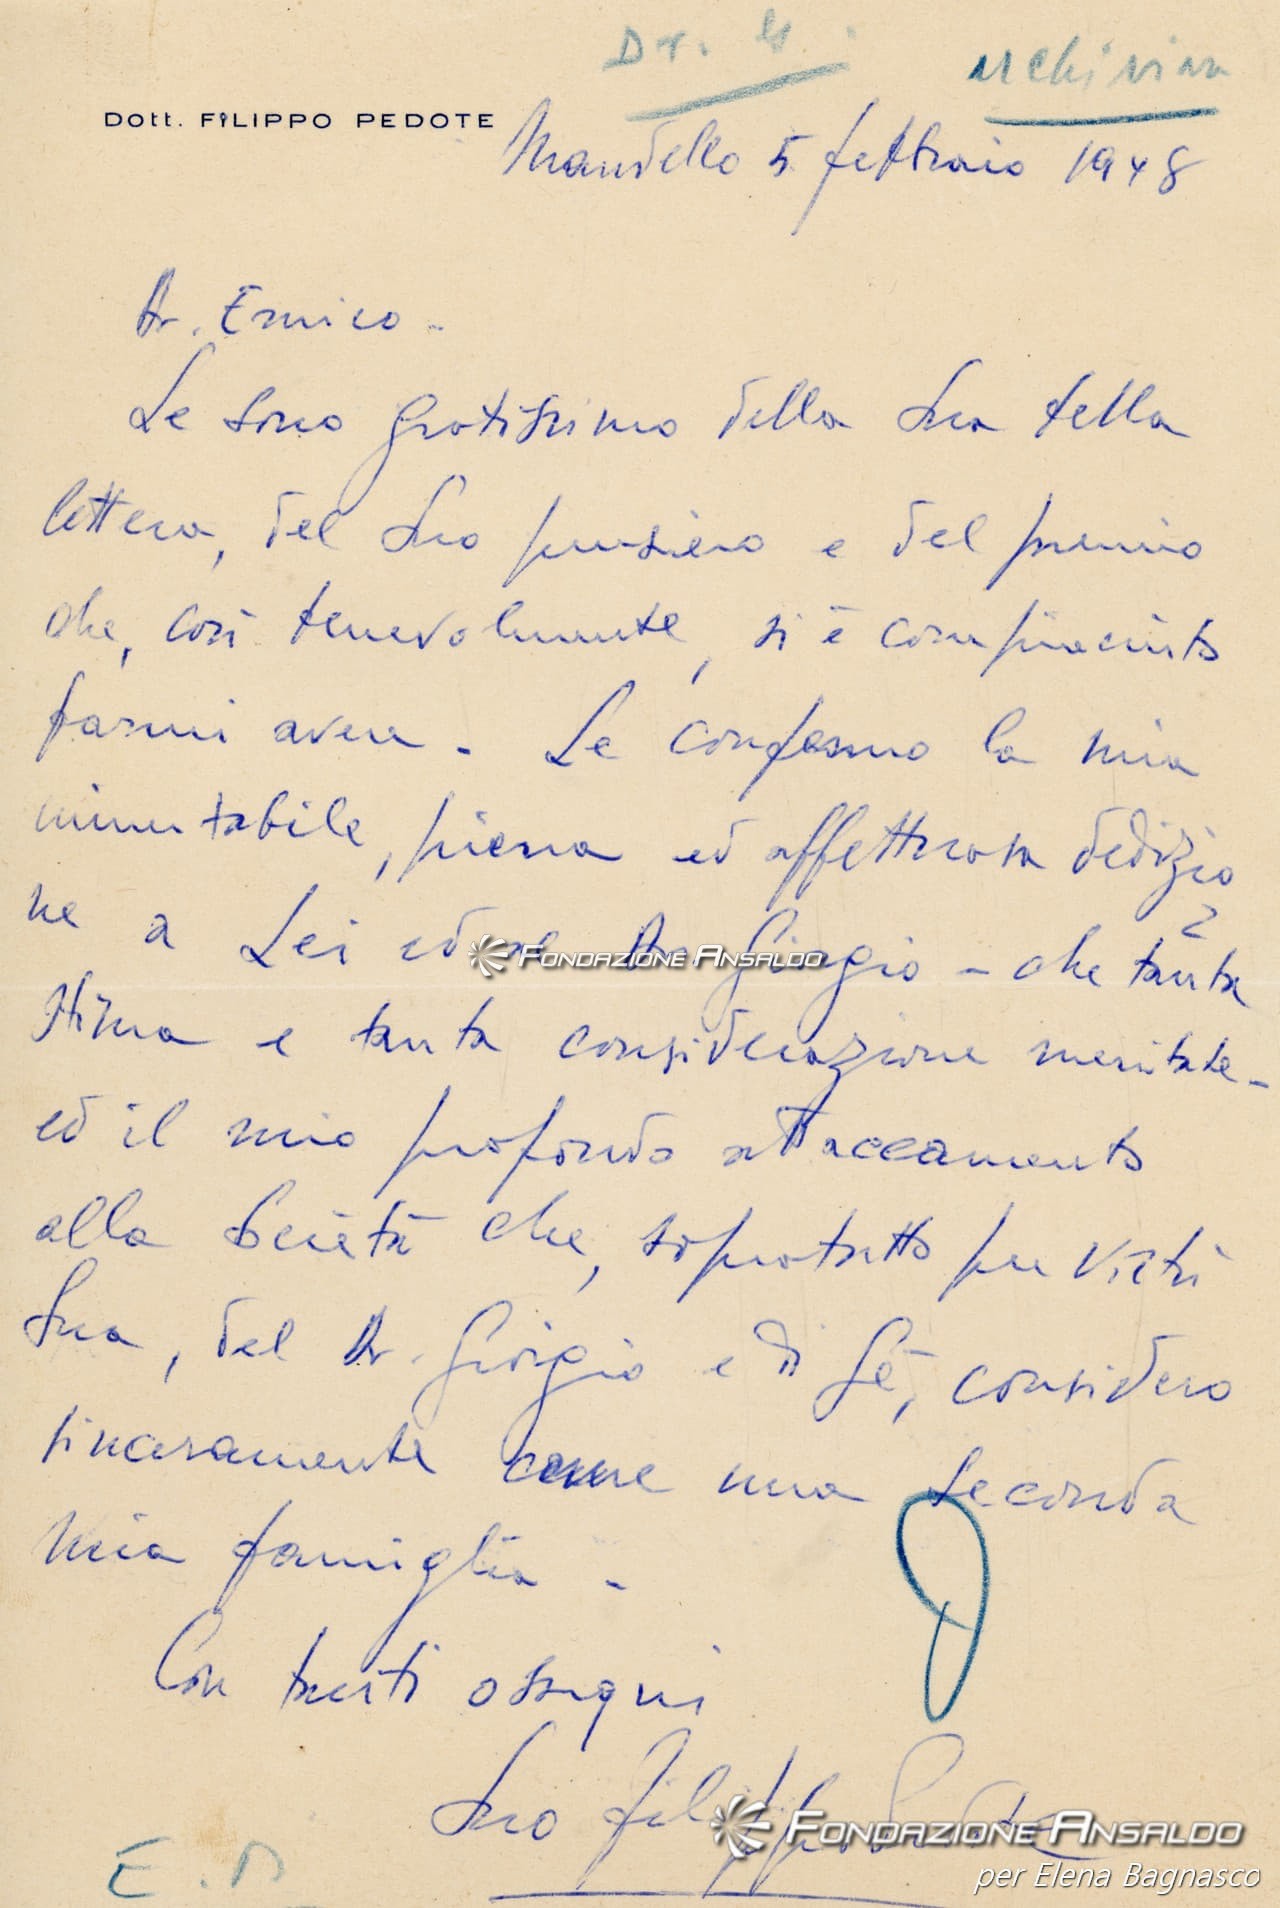 Dr. G.
archiviare
Dott. FILIPPO PEDOTE
Mandello 5 febbraio 1948
Dr. Enrico -
Le sono gratissimo della Sua bella
lettera, del Suo pensiero e del premio
che, così benevolmente, si è compiaciuto
farmi avere - Le confermo la mia
immutabile, piena ed affettuosa dedizio
ne a Lei ed al Dr. Giorgio - che tanta
stima e tanta considerazione meritate -
ed il mio profondo attaccamento
alla Società che, soprattutto per virtù
Sua, del Dr. Giorgio e di , considero
sinceramente come una seconda
mia famiglia -
Con tanti ossequi
Suo Filippo Pedote
FONDAZIONE ANSALDO
FONDAZIONE ANSALDO
per Elena Bagnasco